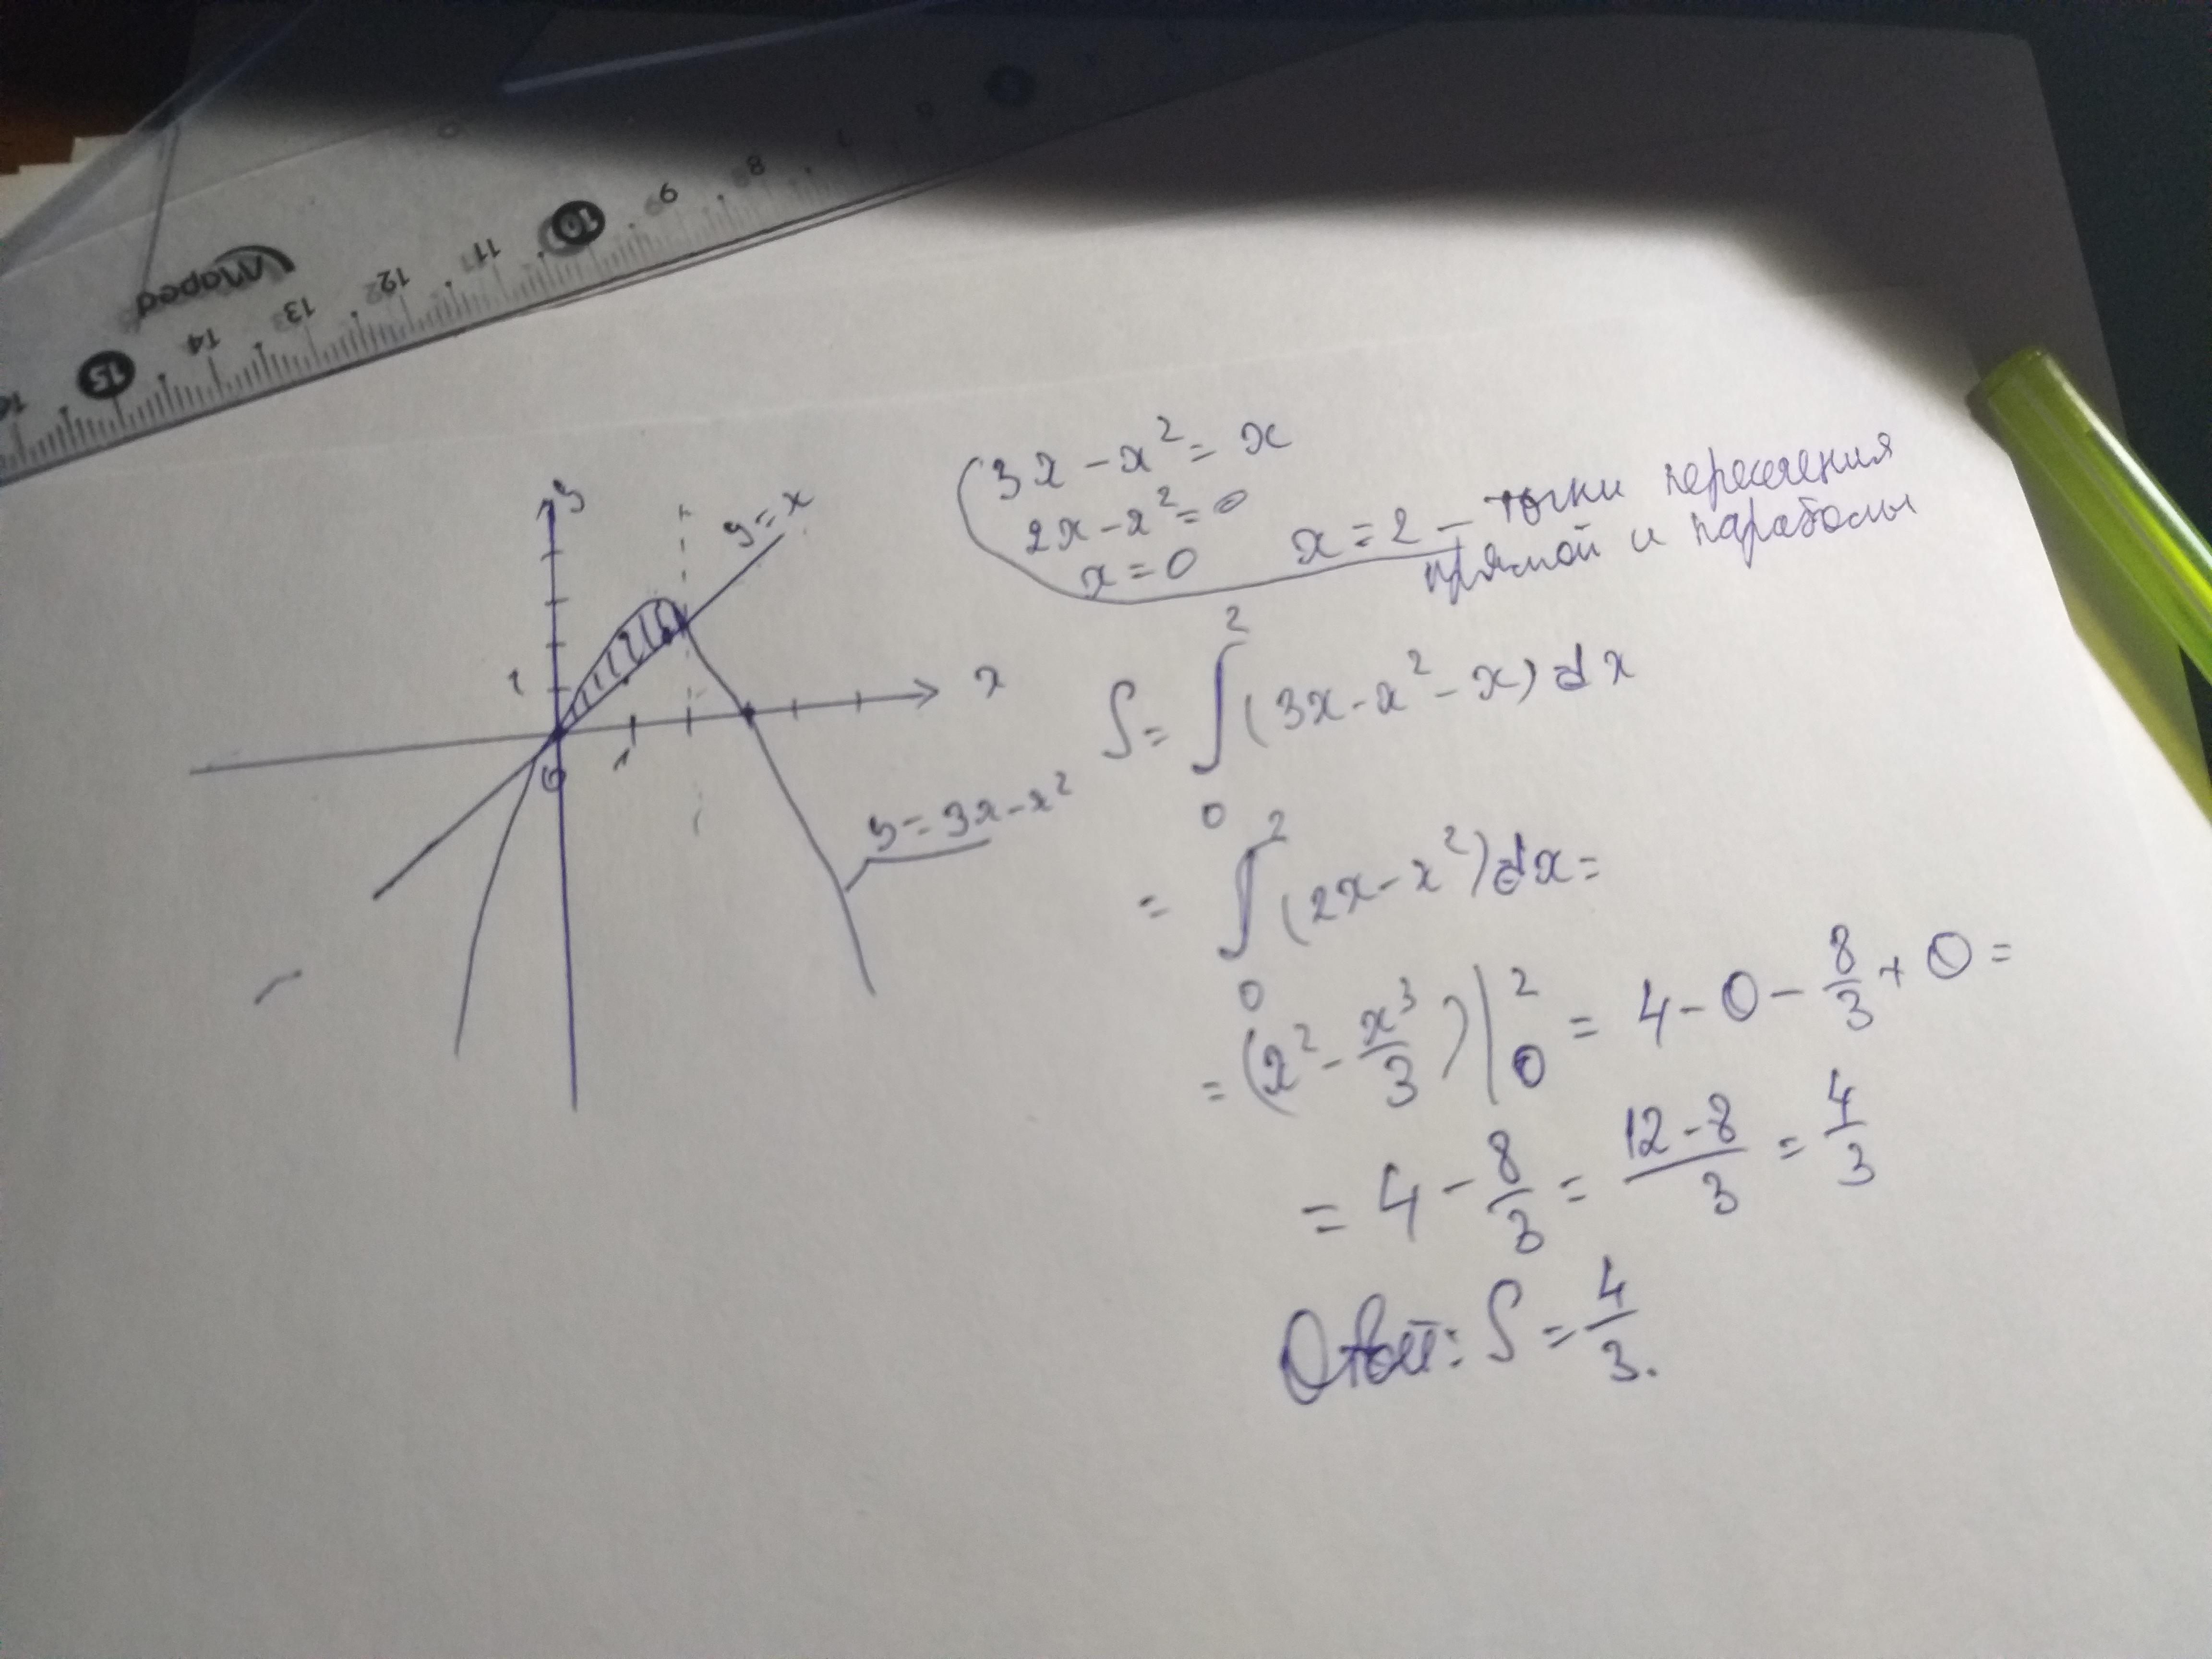 Maped
15 14 13 12 11 10 9 8 7
y
y = x
1
x
0
1
y = 3x - x²
3x - x² = x
2x - x² = 0
x = 0 x = 2 - точки пересечения
прямой и параболы
S = ∫₀² (3x - x² - x) dx
= ∫₀² (2x - x²) dx =
= (x² - x³/3) |₀² = 4 - 0 - 8/3 + 0 =
= 4 - 8/3 = (12 - 8)/3 = 4/3
Ответ: S = 4/3.